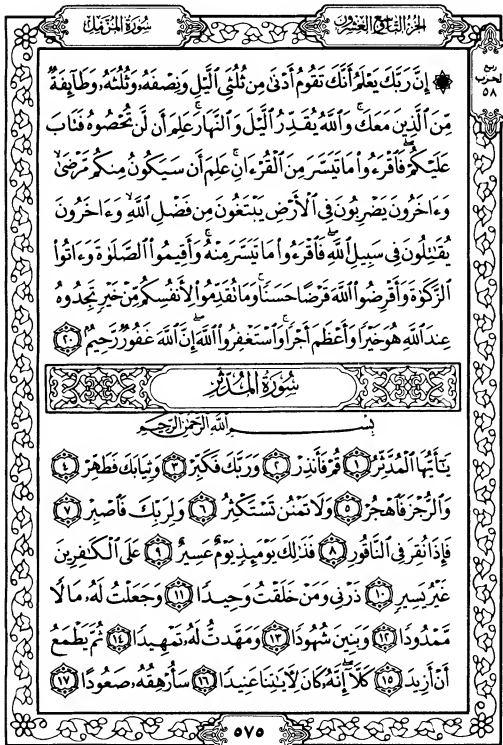 الجزء التاسع والعشرون
سورة المزمل
ربع
الحزب
٥٨
۞ إِنَّ رَبَّكَ يَعْلَمُ أَنَّكَ تَقُومُ أَدْنَىٰ مِن ثُلُثَيِ ٱلَّيْلِ وَنِصْفَهُۥ وَثُلُثَهُۥ وَطَآئِفَةٌ
مِّنَ ٱلَّذِينَ مَعَكَۚ وَٱللَّهُ يُقَدِّرُ ٱلَّيْلَ وَٱلنَّهَارَۚ عَلِمَ أَن لَّن تُحْصُوهُ فَتَابَ
عَلَيْكُمْۖ فَٱقْرَءُوا۟ مَا تَيَسَّرَ مِنَ ٱلْقُرْءَانِۚ عَلِمَ أَن سَيَكُونُ مِنكُم مَّرْضَىٰ
وَءَاخَرُونَ يَضْرِبُونَ فِي ٱلْأَرْضِ يَبْتَغُونَ مِن فَضْلِ ٱللَّهِۙ وَءَاخَرُونَ
يُقَٰتِلُونَ فِي سَبِيلِ ٱللَّهِۖ فَٱقْرَءُوا۟ مَا تَيَسَّرَ مِنْهُۚ وَأَقِيمُوا۟ ٱلصَّلَوٰةَ وَءَاتُوا۟
ٱلزَّكَوٰةَ وَأَقْرِضُوا۟ ٱللَّهَ قَرْضًا حَسَنًاۚ وَمَا تُقَدِّمُوا۟ لِأَنفُسِكُم مِّنْ خَيْرٍ تَجِدُوهُ
عِندَ ٱللَّهِ هُوَ خَيْرًا وَأَعْظَمَ أَجْرًاۚ وَٱسْتَغْفِرُوا۟ ٱللَّهَۖ إِنَّ ٱللَّهَ غَفُورٌ رَّحِيمٌۢ ٢٠
سورة المدثر
بِسْمِ ٱللَّهِ ٱلرَّحْمَٰنِ ٱلرَّحِيمِ
يَٰٓأَيُّهَا ٱلْمُدَّثِّرُ ١ قُمْ فَأَنذِرْ ٢ وَرَبَّكَ فَكَبِّرْ ٣ وَثِيَابَكَ فَطَهِّرْ ٤
وَٱلرُّجْزَ فَٱهْجُرْ ٥ وَلَا تَمْنُن تَسْتَكْثِرُ ٦ وَلِرَبِّكَ فَٱصْبِرْ ٧
فَإِذَا نُقِرَ فِي ٱلنَّاقُورِ ٨ فَذَٰلِكَ يَوْمَئِذٍ يَوْمٌ عَسِيرٌ ٩ عَلَى ٱلْكَٰفِرِينَ
غَيْرُ يَسِيرٍ ١٠ ذَرْنِي وَمَنْ خَلَقْتُ وَحِيدًا ١١ وَجَعَلْتُ لَهُۥ مَالًا
مَّمْدُودًا ١٢ وَبَنِينَ شُهُودًا ١٣ وَمَهَّدتُّ لَهُۥ تَمْهِيدًا ١٤ ثُمَّ يَطْمَعُ
أَنْ أَزِيدَ ١٥ كَلَّآۖ إِنَّهُۥ كَانَ لِءَايَٰتِنَا عَنِيدًا ١٦ سَأُرْهِقُهُۥ صَعُودًا ١٧
٥٧٥